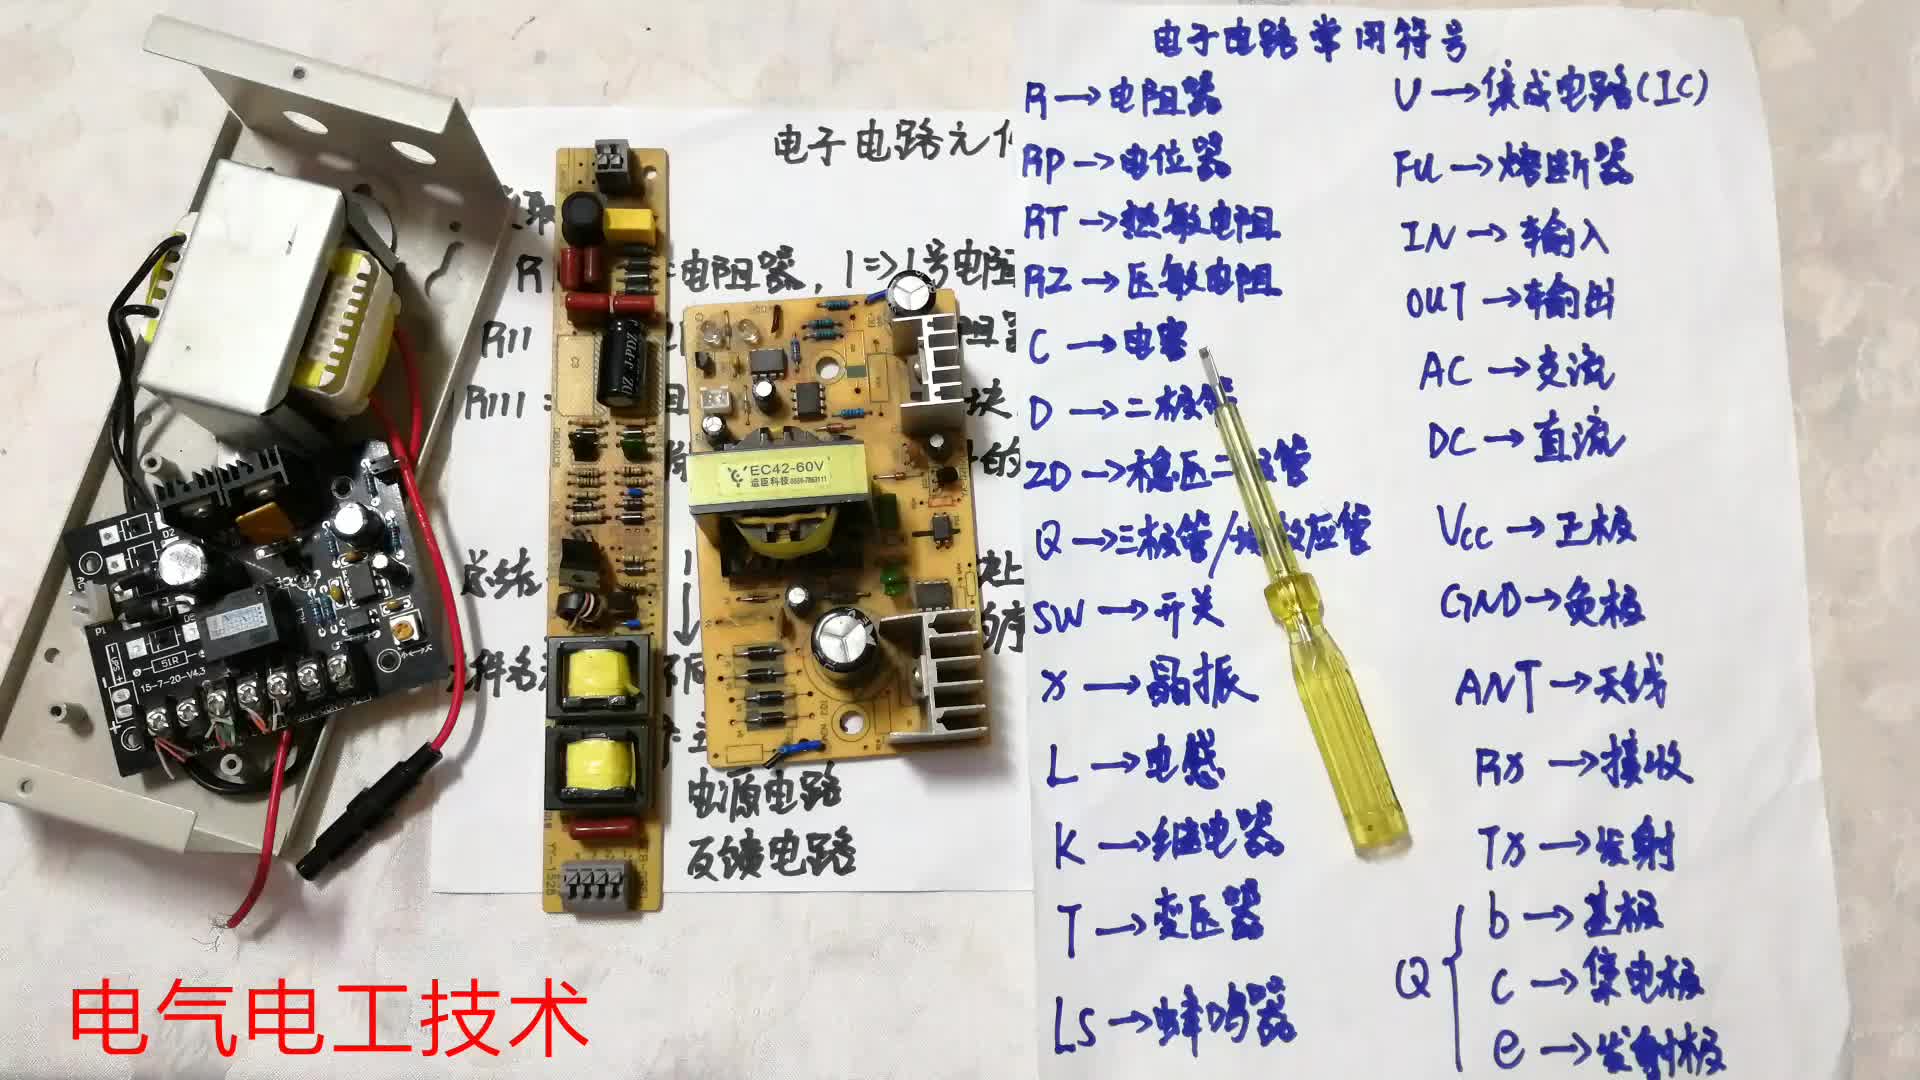 电子电路常用符号
R→电阻器
RP→电位器
RT→热敏电阻
RZ→压敏电阻
C→电容
D→二极管
ZD→稳压二极管
Q→三极管/场效应管
SW→开关
X→晶振
L→电感
K→继电器
T→变压器
LS→蜂鸣器
U→集成电路(IC)
FU→熔断器
IN→输入
OUT→输出
AC→交流
DC→直流
Vcc→正极
GND→负极
ANT→天线
RX→接收
TX→发射
Q
b→基极
c→集电极
e→发射极
电子电路元
R
电阻器，1=>1号电阻
R11
R111
总结
电源电路
反馈电路
EC42-60V
J·PDZ
C3
P1
51R
15-7-20-V4.3
YY-1528
电气电工技术